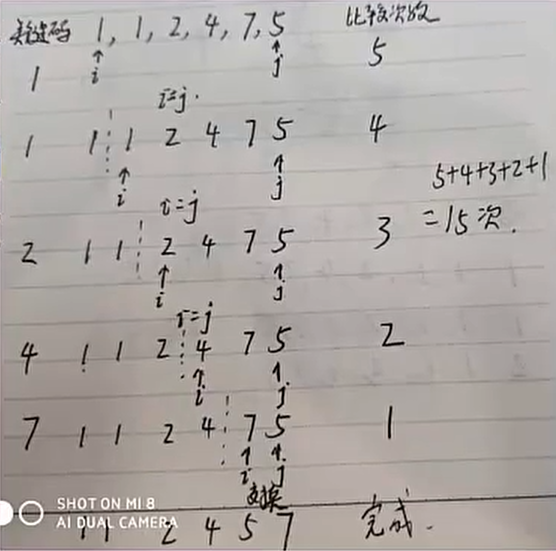 关键码 1, 1, 2, 4, 7, 5 比较次数
1 i j 5
i=j.
1 1 1 2 4 7 5 4
i j
5+4+3+2+1
i=j
=15次.
2 1 1 2 4 7 5 3
i j
i=j
4 1 1 2 4 7 5 2
i j
7 1 1 2 4 7 5 1
i j
交换
SHOT ON MI 8
AI DUAL CAMERA
1 1 2 4 5 7 完成.